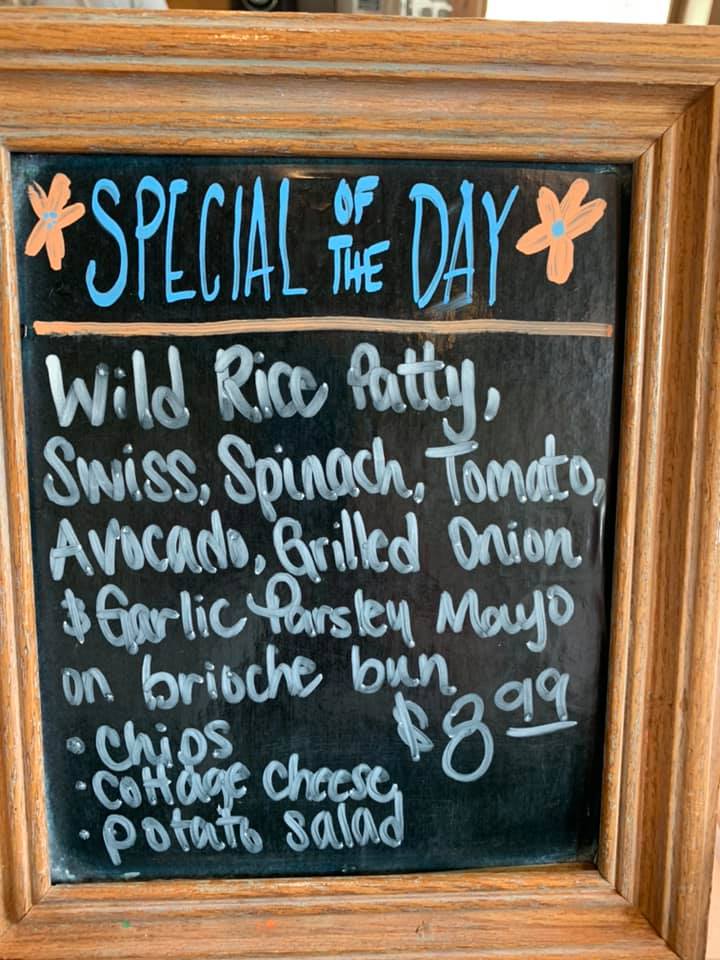 SPECIAL OF THE DAY
Wild Rice Patty,
Swiss, Spinach, Tomato,
Avocado, Grilled Onion
& Garlic Parsley Mayo
on brioche bun
$8.99
• chips
• cottage cheese
• potato salad